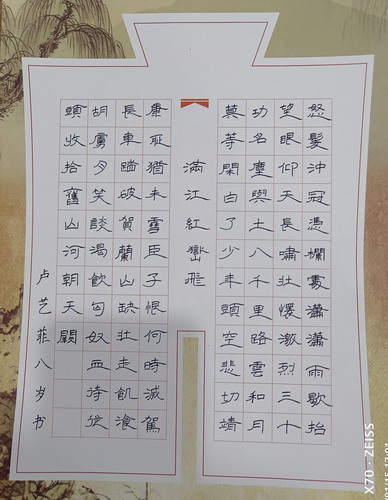 怒髮沖冠憑欄處瀟瀟雨歇抬
望眼仰天長嘯壯懷激烈三十
功名塵與土八千里路雲和月
莫等閑白了少年頭空悲切靖
滿江紅嶽飛
康恥猶未雪臣子恨何時滅駕
長車踏破賀蘭山缺壯志飢飡
胡虜肉笑談渴飲匈奴血待從
頭收拾舊山河朝天闕
卢艺菲八岁书
X70 · ZEISS